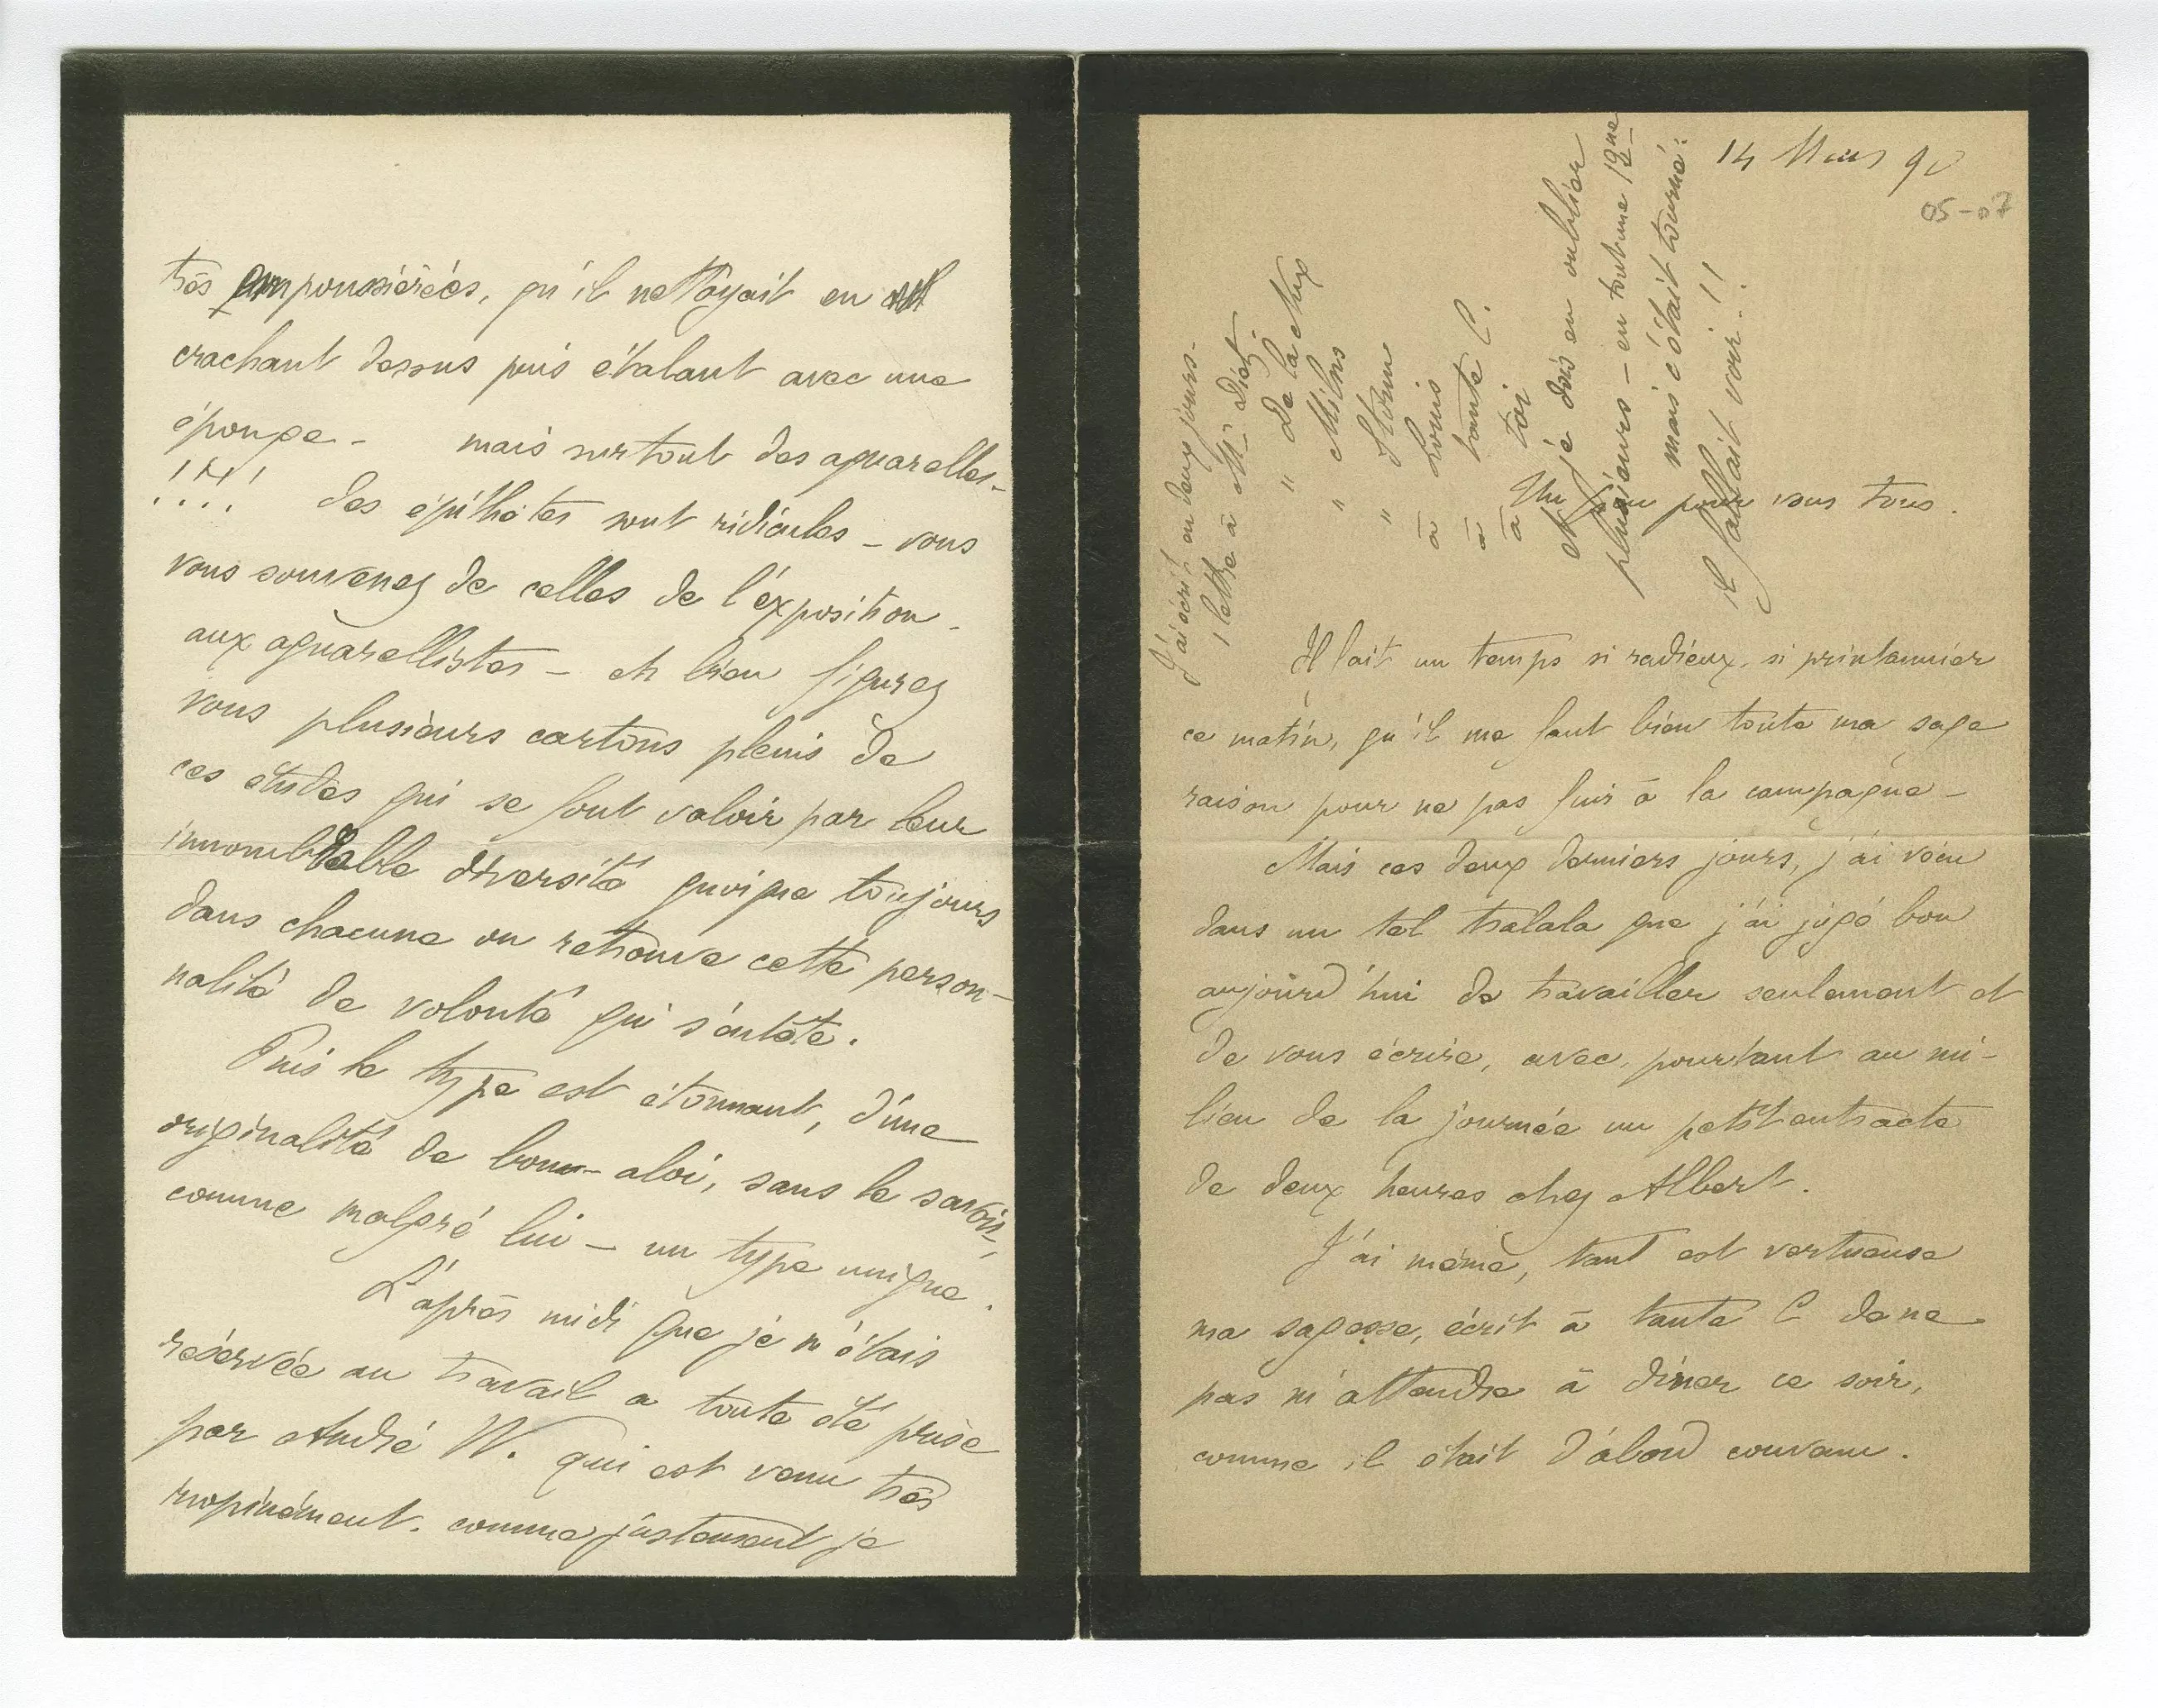 très empoussiérées, qu'il nettoyait en
crachant dessus puis étalant avec une
éponge - mais surtout des aquarelles -
!!!! des épithètes sont ridicules - vous
vous souvenez de celles de l'exposition
aux aquarellistes - eh bien figurez
vous plusieurs cartons pleins de
ces études qui se font valoir par leur
innombrable diversité quoique toujours
dans chacune on retrouve cette person-
nalité de volonté qui s'entête.
Puis le type est étonnant, d'une
originalité de bon aloi, sans le savoir,
comme malgré lui - un type unique.
L'après midi que je m'étais
réservée au travail a toute été prise
par André W. qui est venu très
inopinément. comme justement je
14 Mars 90
05-07
J'ai écrit en deux jours -
1 lettre à Mr Diot
" De la Nux
" Milns
"
à Louis
à tante C.
à toi
et je dois en oublier
plusieurs - en tout une 12ne
mais c'était tourné :
il fallait voir !!
Un peu pour vous tous.
Il fait un temps si radieux, si printannier
ce matin, qu'il me faut bien toute ma sage
raison pour ne pas fuir à la campagne -
Mais ces deux derniers jours, j'ai vécu
dans un tel tralala que j'ai jugé bon
aujourd'hui de travailler seulement et
de vous écrire, avec, pourtant au mi-
lieu de la journée un petit entracte
de deux heures chez Albert.
J'ai même, tant est vertueuse
ma sagesse, écrit à tante C de ne
pas m'attendre à dîner ce soir,
comme il était d'abord convenu.